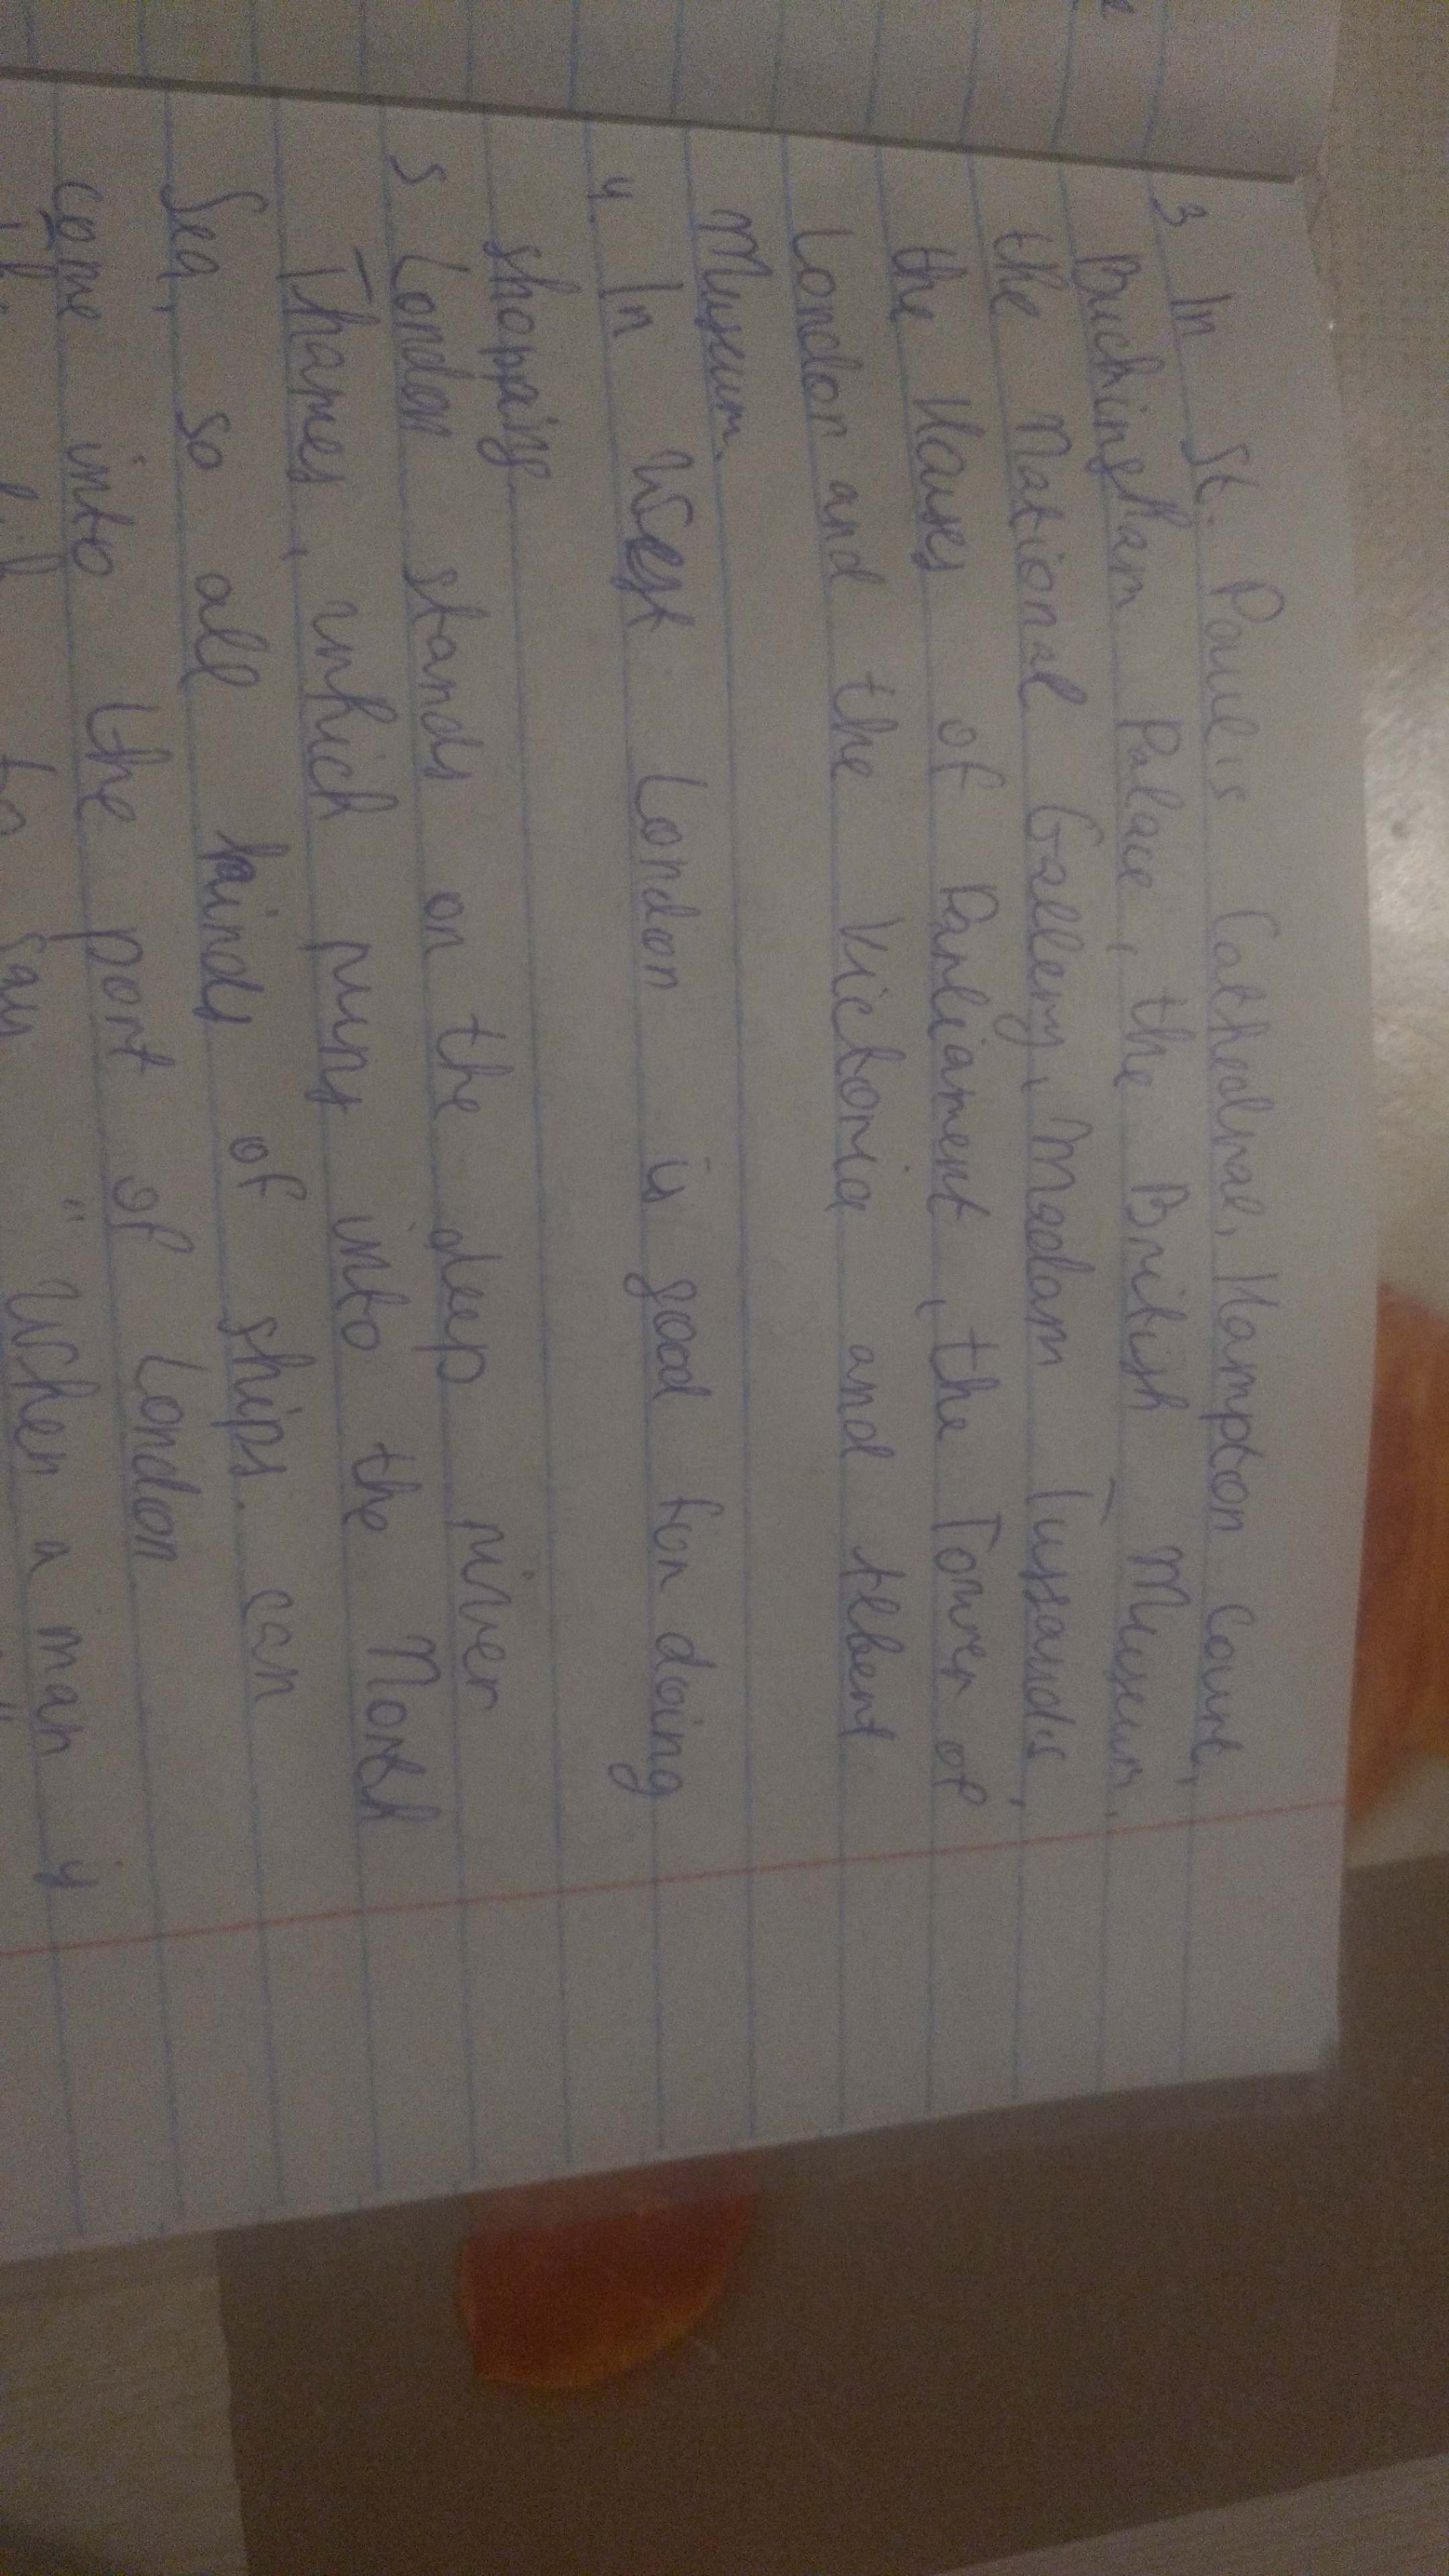 3 In St. Paul's Cathedral, Hampton Court,
Buckingham Palace, the British Museum,
the National Gallery, Madam Tussauds,
the Houses of Parliament, the Tower of
London and the Victoria and Albert
Museum.
4. In West London is good for doing
shopping
5 London stands on the deep river
Thames, which runs into the North
Sea, so all kinds of ships. can
come into the port of London
" When a man is